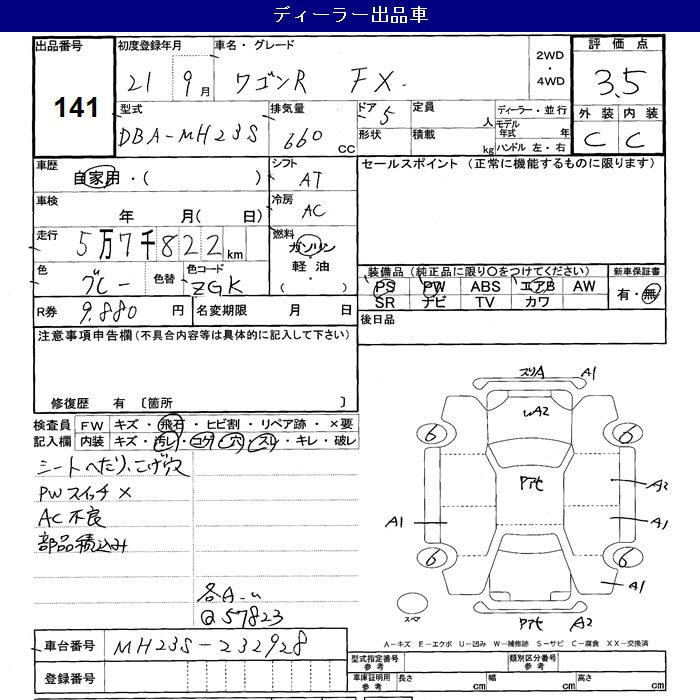 ディーラー出品車
出品番号 初度登録年月 車名・グレード 評価点
141
21年 9月 ワゴンR FX 2WD・4WD 3.5
型式 排気量 ドア 定員 ディーラー・並行 外装 内装
DBA-MH23S 660CC 5 人 モデル年式 年 C C
形状 積載 kg ハンドル 左・右
車歴 シフト セールスポイント (正常に機能するものに限ります)
自家用・( ) AT
車検 冷房
年 月( 日) AC
走行 燃料
5万7千822km ガソリン・軽油・( )
色 色替 色コード 装備品 (純正品に限り○をつけてください) 新車保証書
グレー ZGK PS PW ABS エアB AW 有・無
SR ナビ TV カワ
R券 9.880円 名変期限 月 日 後日品
注意事項申告欄(不具合内容等は具体的に記入して下さい)
修復歴 有 〔箇所 〕
検査員 FW キズ・飛石・ヒビ割・リペア跡・×要
記入欄 内装 キズ・汚レ・コゲ・穴・スレ・キレ・破レ
シートへたり、こげ穴
PWスイッチ×
AC不良
部品積込み
各A-u
@57823
スリA A1
uA2
6 6
アアセ
A2
A1 A1
6 6
A1
アアセ A2
スペア
A-キズ E-エクボ U-凹み W-補修跡 S-サビ C-腐食 XX-交換済
車台番号 MH23S-232928
登録番号
型式指定番号 参考 類別区分番号 参考
車庫証明用 参考 長さ cm 幅 cm 高さ cm